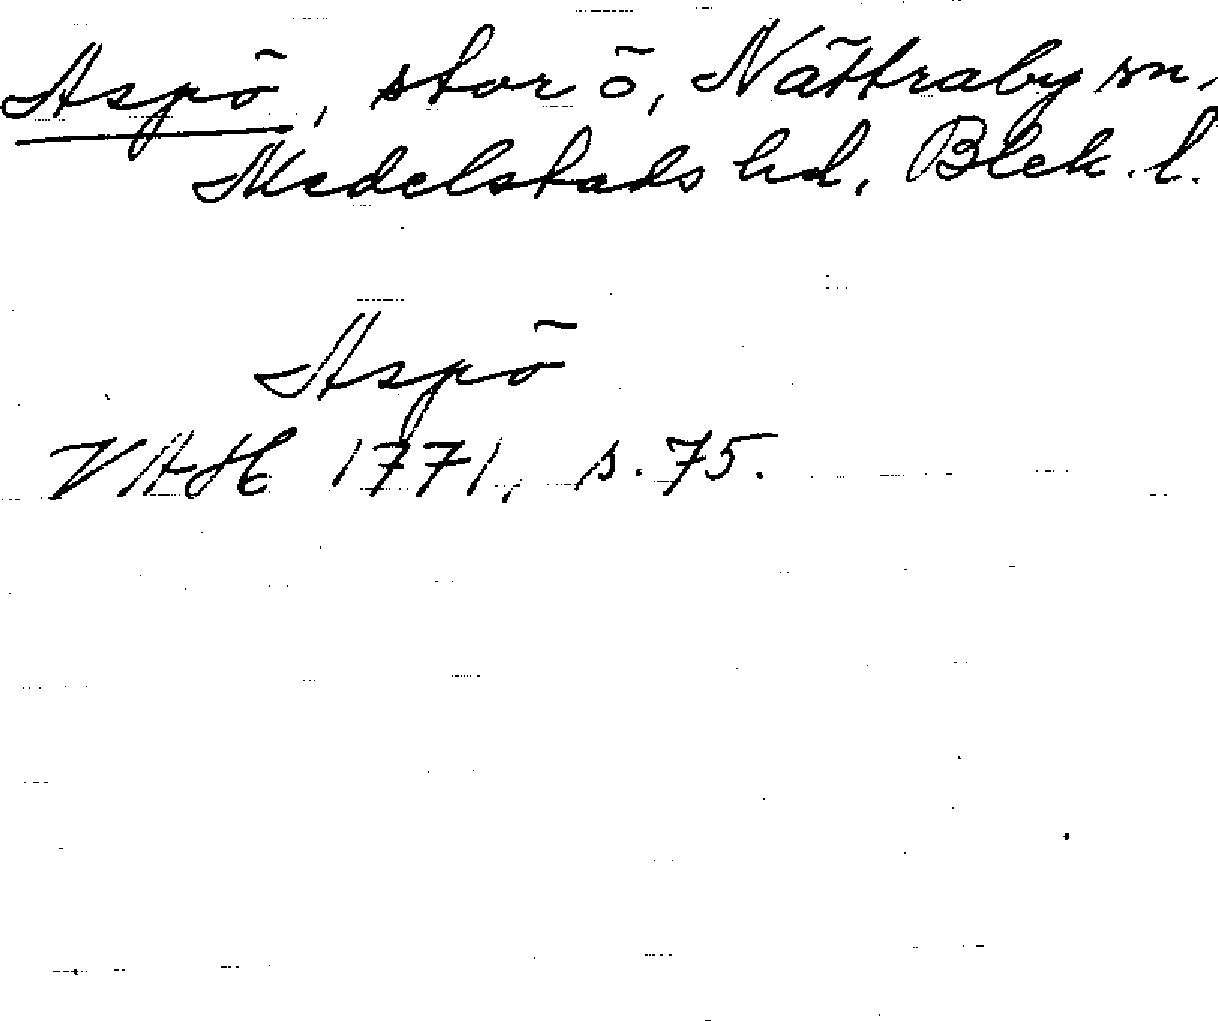 Aspö, stor ö, Nättraby sn,
Medelstads hd, Blek. l.
Aspö
VAH 1771, s. 75.